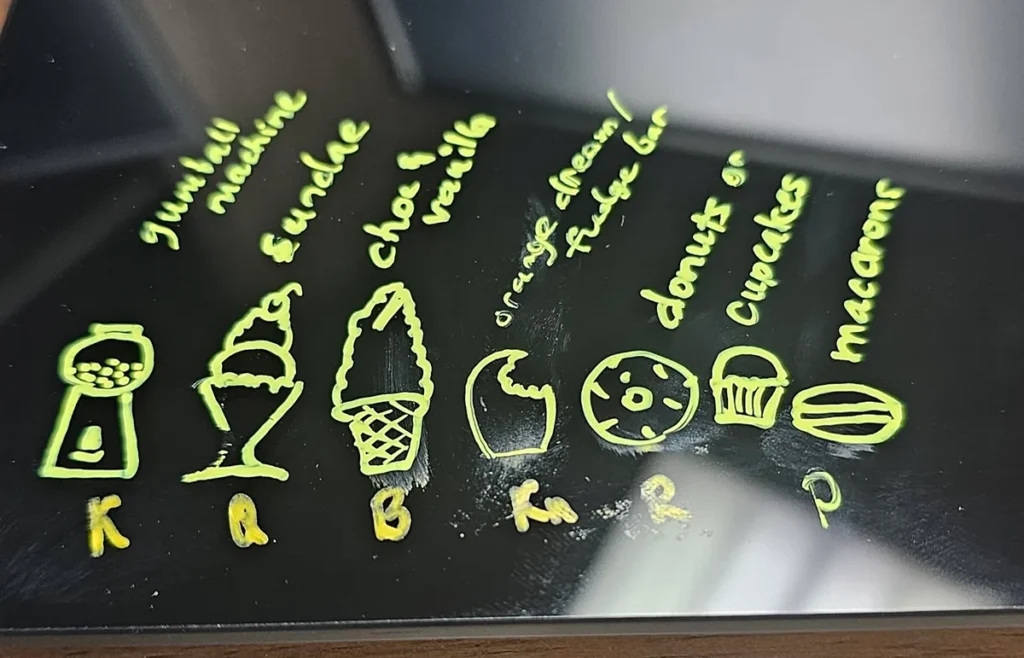 gumball
machine
sundae
choc &
vanilla
orange dream /
fudge bar
donuts or
cupcakes
macarons
K
Q
B
Kn
R
P